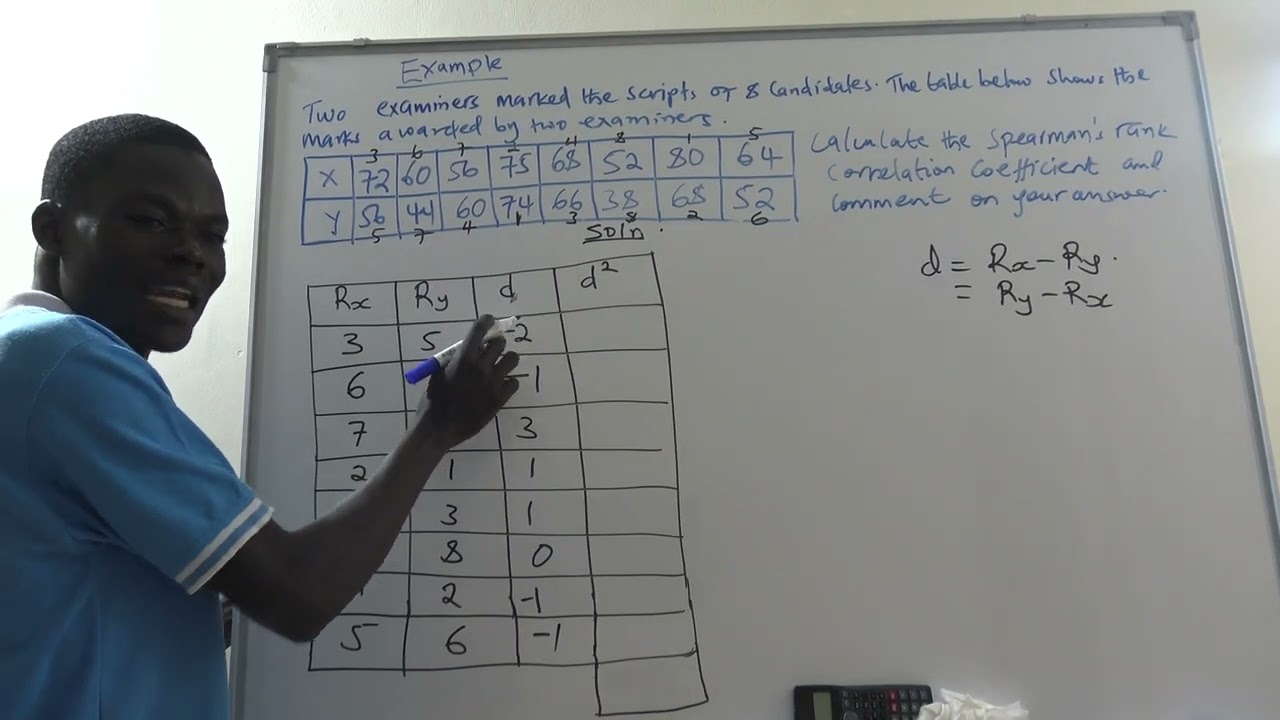 Example
Two examiners marked the scripts of 8 Candidates. The table below shows the
marks awarded by two examiners.
3 6 7 2 4 8 1 5
X 72 60 56 75 68 52 80 64
Y 56 44 60 74 66 38 68 52
5 7 4 1 3 8 2 6
Calculate the Spearman's rank
correlation coefficient and
comment on your answer.
Soln.
d = Rx - Ry.
= Ry - Rx
Rx Ry d d²
3 5 -2
6 -1
7 3
2 1 1
3 1
8 0
2 -1
5 6 -1